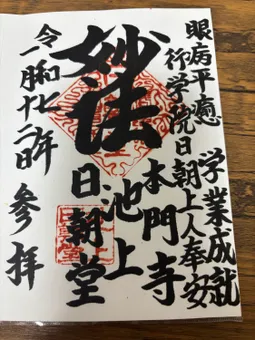 眼病平癒 学業成就
行学院日朝上人奉安
本門寺
池上
妙法
日朝堂
令和七年
一月十二日
参拝